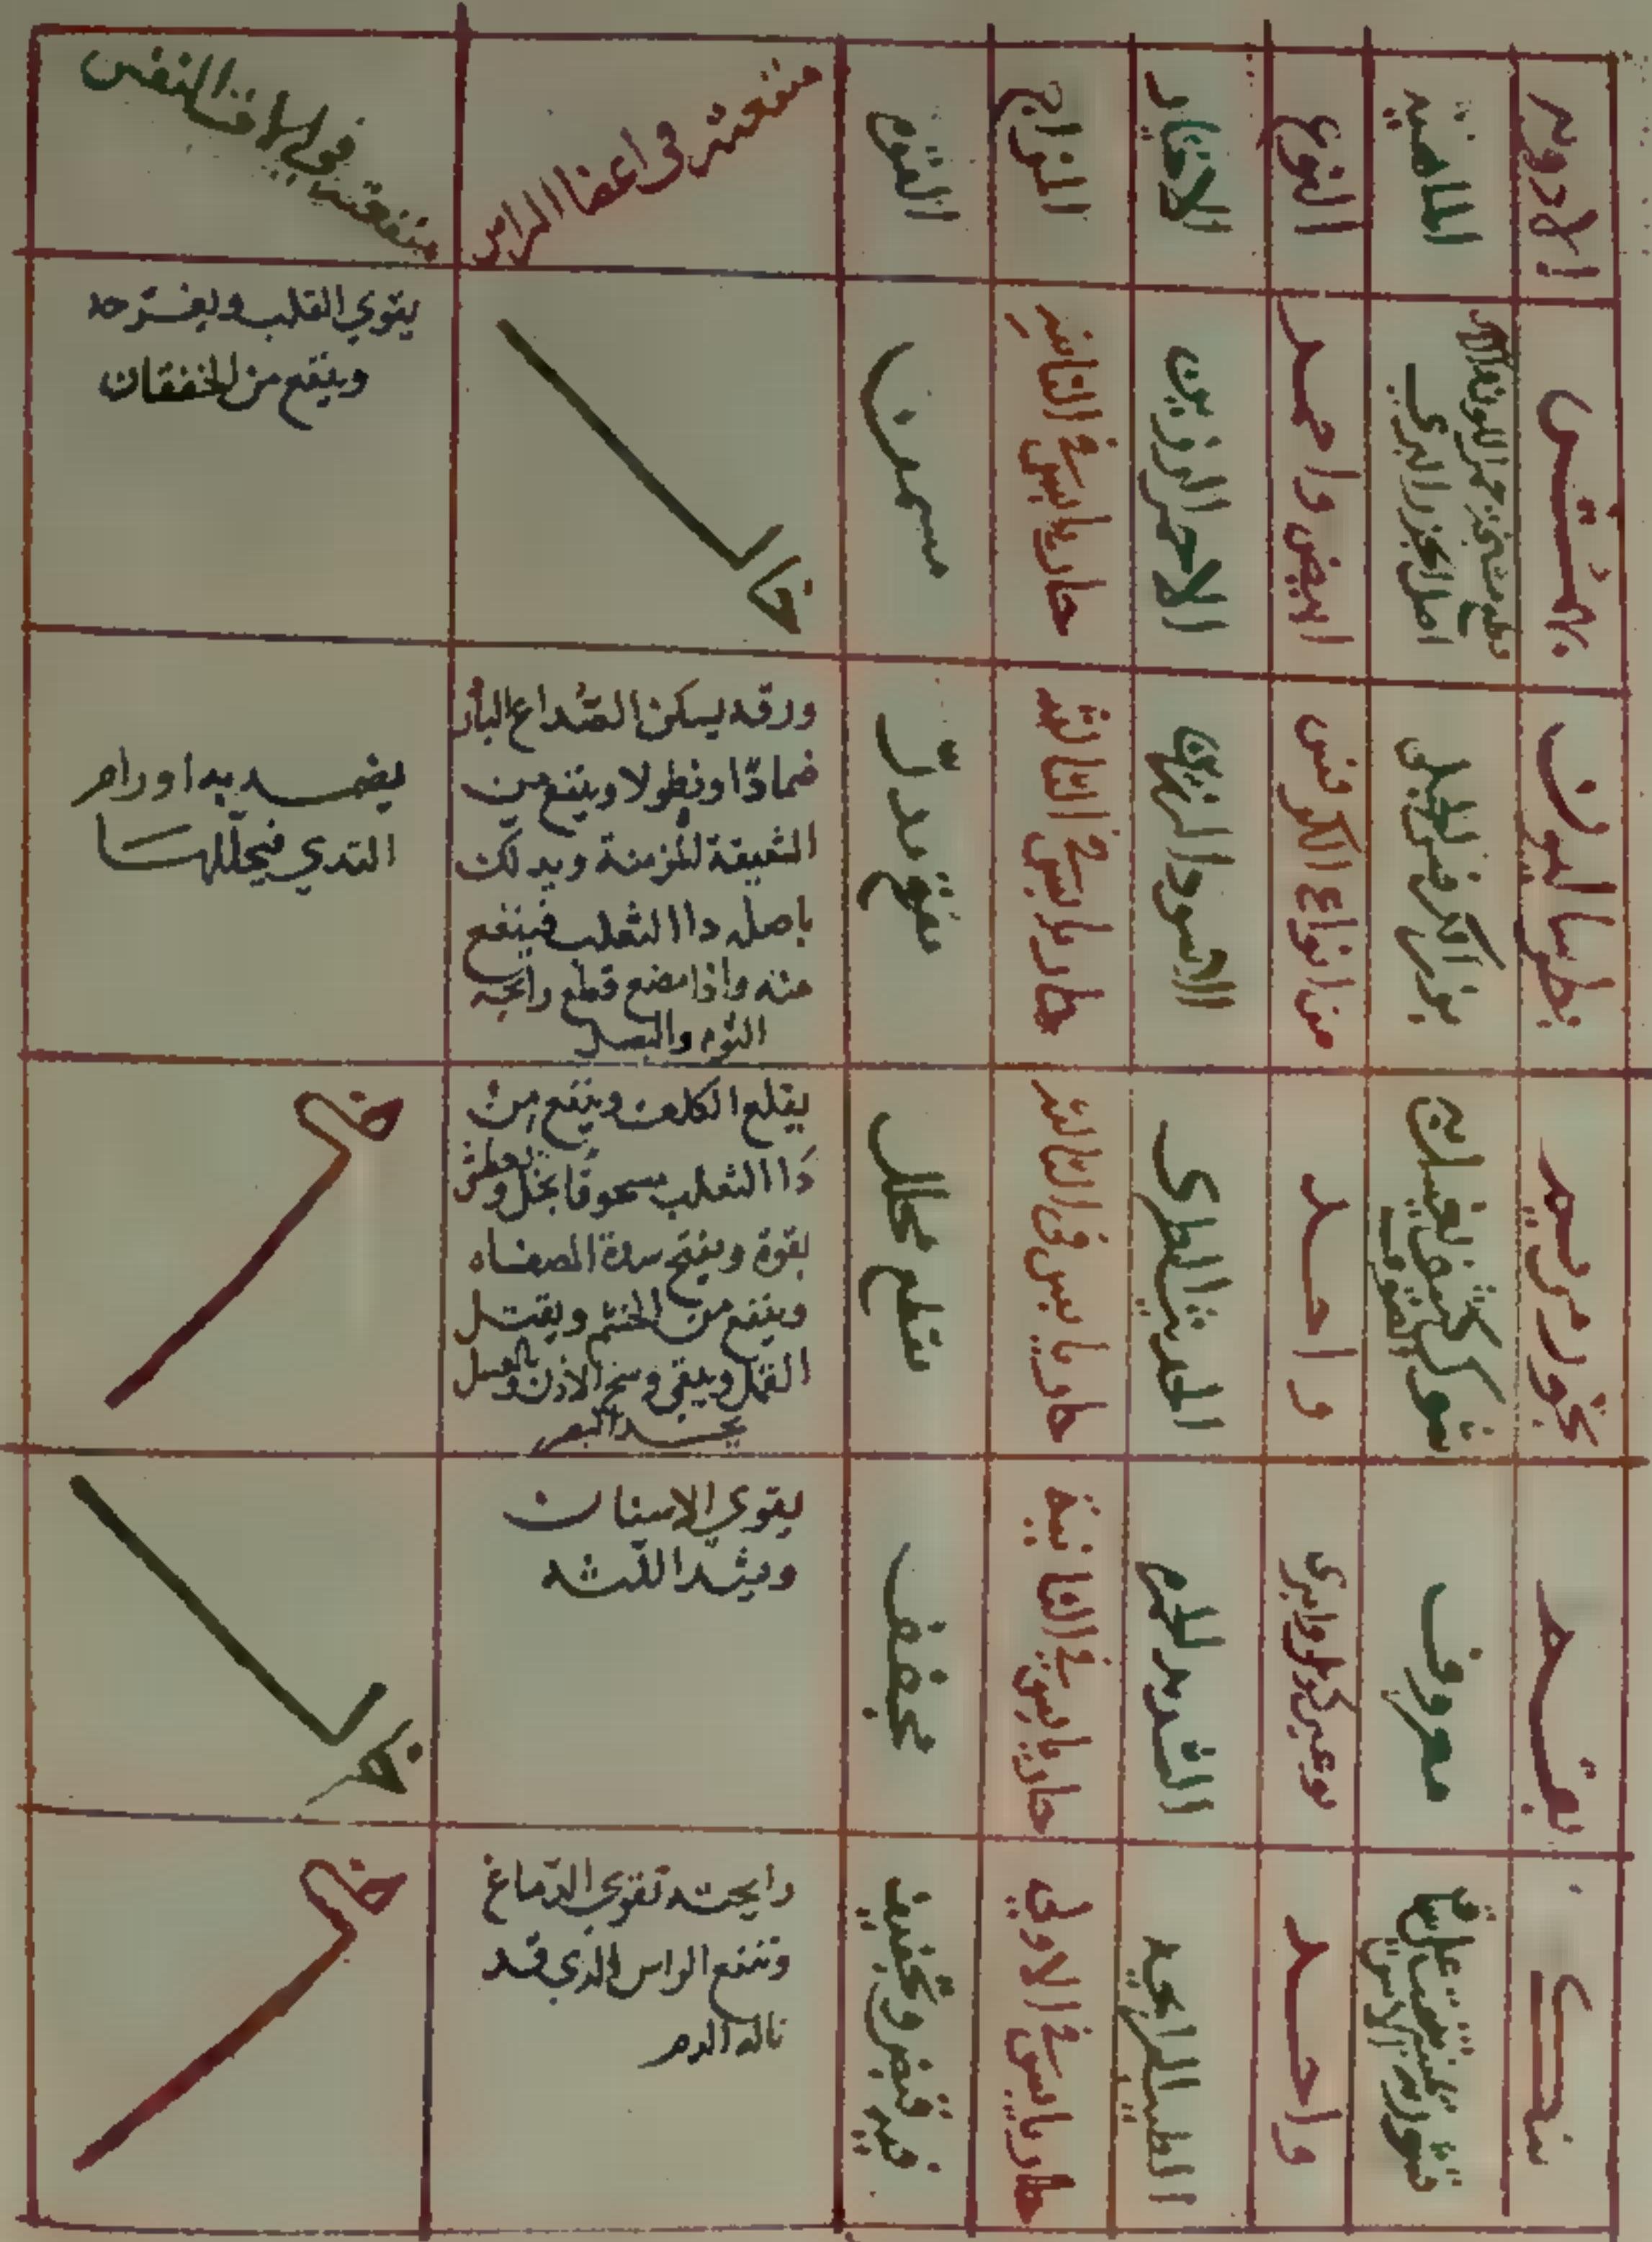 الادويه
الماهيه
النوع
الاختيار
المزاج
القوه
منفعته في اعضا الراس
منفعته في الات النفس
بهمن
ابيض واحمر
الاحمر الرزين
حار يابس في الثانيه
مسمن
خال
يقوي القلب ويفرحه
وينفع من الخفقان
بطراساليون
بزر الكرفس الجبلي
من انواع الكرفس
الاسود الرزين
حار يابس في الثالثه
مفتح مدر
ورقه يسكن الصداع البارد
ضمادا ونطولا وينفع من
الشقيقة المزمنة ويدلك
باصله دا الثعلب فينفع
منه واذا مضغ قطع رايحه
الثوم والبصل
يضمد به اورام
الثدي فيحللها
بخور مريم
واحد
الحديث الطري
حار يابس في الثالثه
مقطع محلل
يقلع الكلف وينفع من
دا الثعلب مسحوقا بخل ويعطس
بقوة ويفتح سدة المصفاه
وينفع من الخشم ويقتل
القمل وينقي وسخ الاذن وبالعسل
يحد البصر
خال
معروف
الشديد الحمره
حار يابس في الثانية
مجفف
يقوي الاسنان
ويشد اللثه
خال
بنك
قشور
واحد
الطيب الرايحه
حار يابس في الاولي
فيه قبض وتجفيف
رايحته تقوي الدماغ
وتنفع الراس الذي قد
ناله الدم
خال